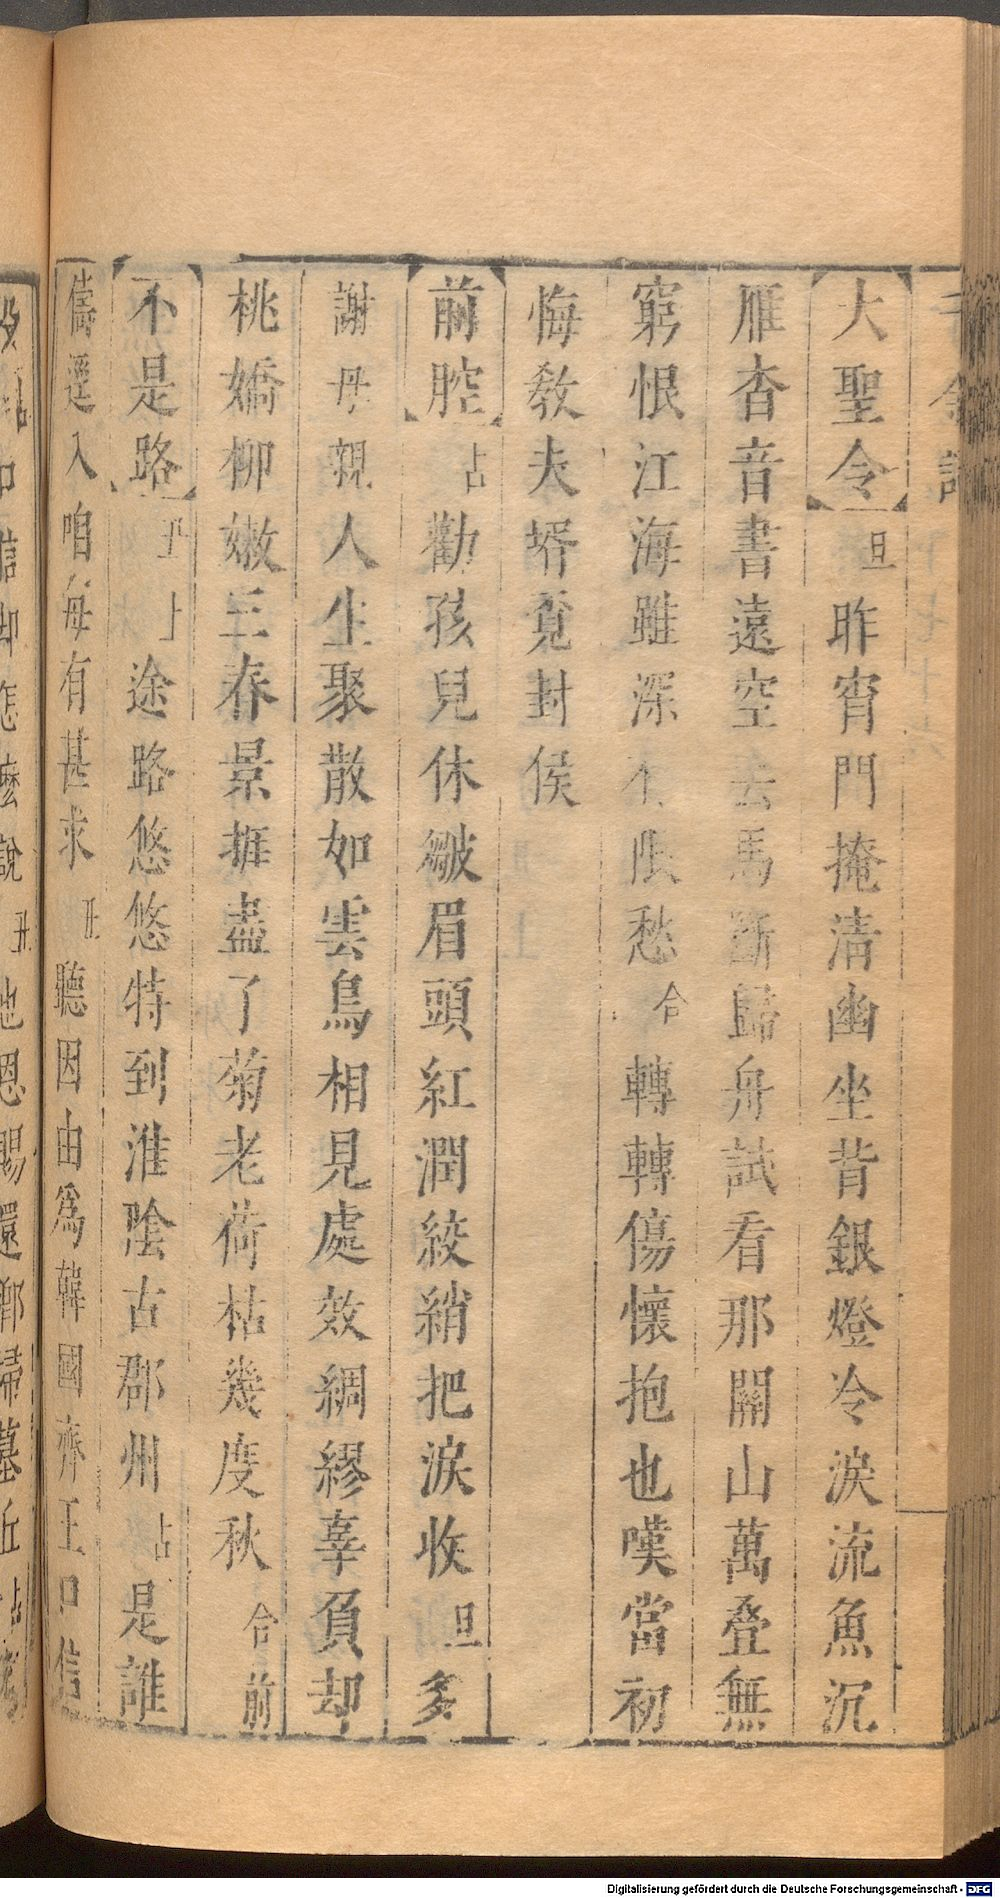 大聖令旦昨宵門掩清幽坐背銀燈冷淚流魚沉
雁杳音書遠空去馬斷歸舟試看那關山萬叠無
窮恨江海雖深不限愁合轉轉傷懷抱也嘆當初
悔教夫壻覓封侯
前腔占勸孩兒休皺眉頭紅潤絞綃把淚收旦多
謝母親人生聚散如雲鳥相見處效綢繆辜負却
桃嬌柳嫩三春景捱盡了菊老荷枯幾度秋合前
不是路丑上途路悠悠特到淮陰古郡州占是誰
儔逕入咱每有甚求丑聽因由爲韓國齊王口信
占 口信却怎麼說丑他恩賜還鄉歸墓丘占
Digitalisierung gefördert durch die Deutsche Forschungsgemeinschaft - DFG